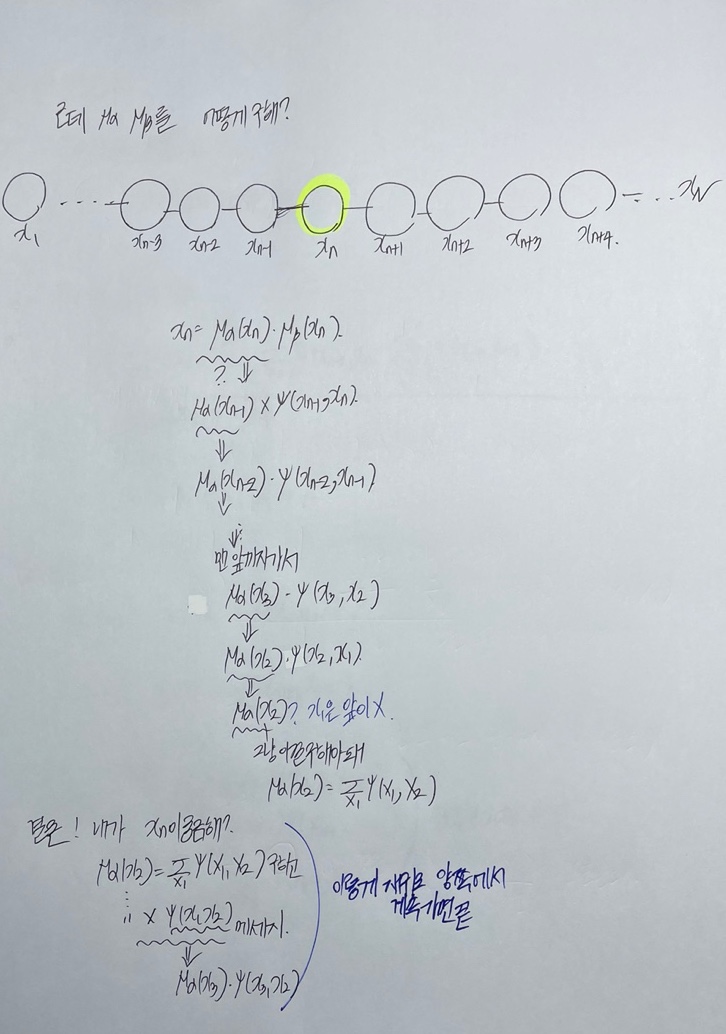 근데 μα μβ를 어떻게 구해?
x₁ .... xn-3 xn-2 xn-1 xn xn+1 xn+2 xn+3 xn+4. ... xN
xn = μα(xn)·μβ(xn).
? ⇓
μα(xn-1) × ψ(xn-1, xn).
⇓
μα(xn-2)·ψ(xn-2, xn-1)
↓
⇓
맨 앞까지가서
μα(x₃)·ψ(x₃, x₂)
⇓
μα(x₂)·ψ(x₂, x₁).
⇓
μα(x₂)? x₁은 앞이 X.
그냥 이걸 구해야돼
μα(x₂) = Σx₁ ψ(x₁, x₂)
결론! 내가 xn이 궁금해?
μα(x₂) = Σx₁ ψ(x₁, x₂) 구하고
× ψ(x₁, x₂) 메세지.
⇓
μα(x₃)·ψ(x₃, x₂)
이렇게 양쪽에서
계속가면 끝